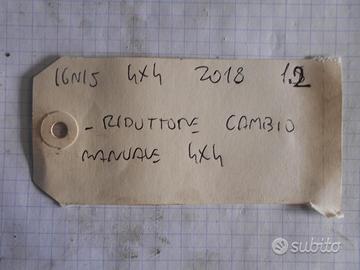 IGNIS 4X4 2018 1.2
- RIDUTTORE CAMBIO
MANUALE 4X4
subito